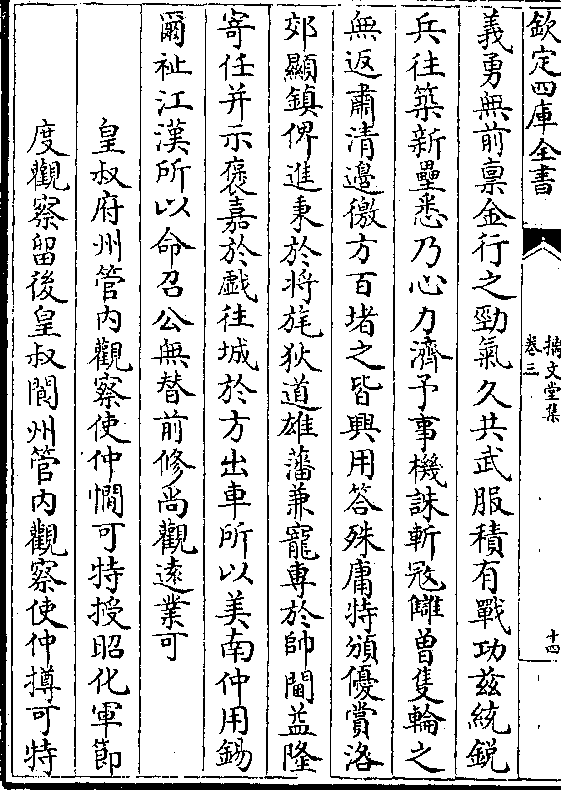 欽定四庫全書
摛文堂集
卷三
十四
義勇無前禀金行之勁氣久共武服積有戰功兹統鋭
兵往築新壘悉乃心力濟予事機誅斬冦讎曽隻輪之
無返肅清邊徼方百堵之皆興用答殊庸特頒優賞洛
郊顯鎮俾進秉於将旄狄道雄藩兼寵專於帥閫益隆
寄任并示褒嘉於戲往城於方出車所以美南仲用錫
爾祉江漢所以命召公無替前修尚觀遠業可
皇叔府州管内觀察使仲㦖可特授昭化軍節
度觀察留後皇叔閬州管内觀察使仲㨄可特